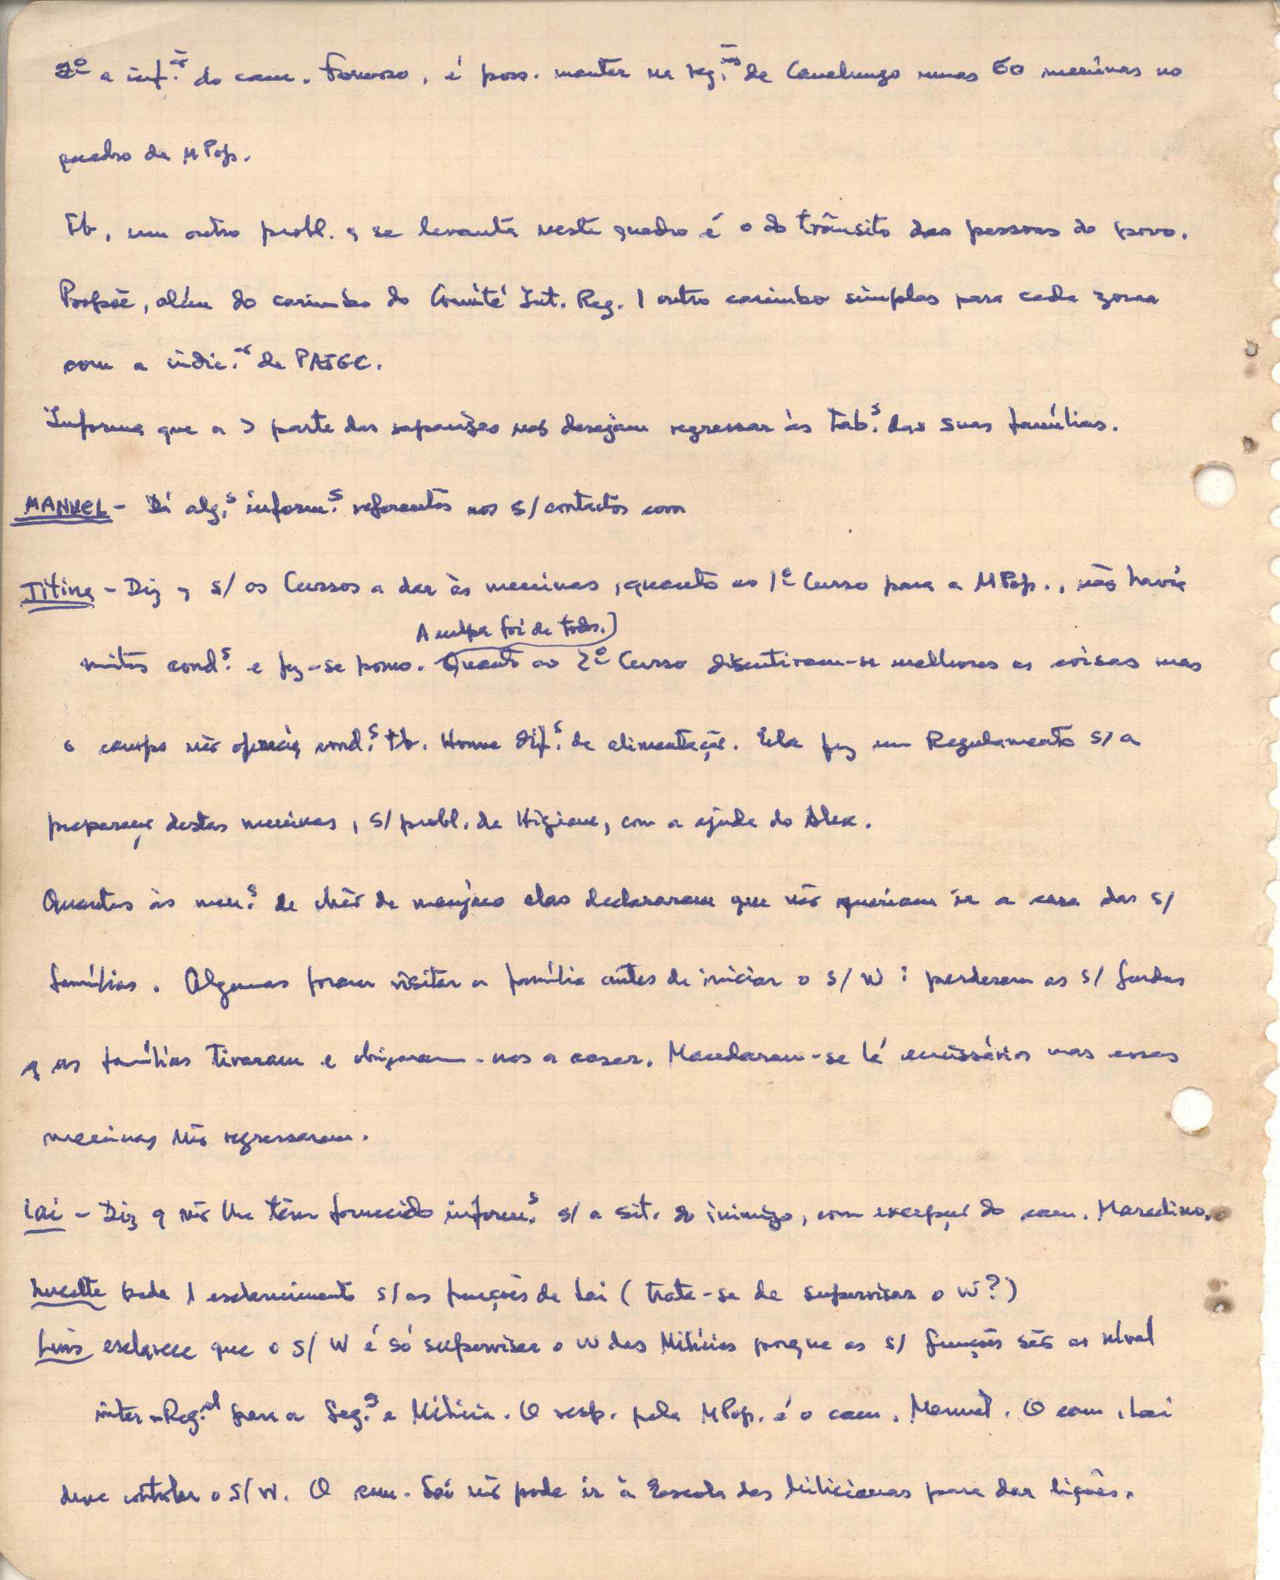 2º a inf.ão do cam. Formoso, é poss. manter na reg.ão de Canchungo umas 60 meninas no
quadro da MPop.
Tb, um outro probl. q se levanta neste quadro é o do trânsito das pessoas do povo.
Propõe, além do carimbo do Comité Int. Reg. 1 outro carimbo simples para cada zona
com a indic.ão de PAIGC.
Informa que a > parte das raparigas não desejam regressar às tab.s das suas famílias.
MANUEL - Dá alg.s inform.s referentes aos s/ contactos com
Titina - Diz q s/ os Cursos a dar às meninas, quanto ao 1º Curso para a MPop., não havia
A culpa foi de todos.)
muitas cond.s e fez-se pouco. Quanto ao 2º Curso discutiram-se melhores as coisas mas
o campo não oferecia cond.s tb. Houve dif.s de alimentação. Ela fez um Regulamento s/ a
preparaç destas meninas, s/ probl. de Higiene, com a ajuda do Alex.
Quantas às men.s de chão de manjaco elas declararam que não queriam ir a casa das s/
famílias. Algumas foram visitar a família antes de iniciar o s/ W: perderam as s/ fardas
q as famílias tiraram e obrigaram-nas a casar. Mandaram-se lá emissários mas essas
meninas não regressaram.
Lai - Diz q não lhe têm fornecido inform.s s/ a sit. do inimigo, com excepç do cam. Marcelino.
Lucette pede 1 esclarecimento s/ as funções de Lai (trata-se de supervisar o W?)
Luis esclarece que o s/ W é só supervisar o W das Milícias porque as s/ funções são ao nível
inter-Reg.al para a Seg.ª e Milícia. O resp. pela MPop. é o cam. Manuel. O cam. Lai
deve controlar o s/ W. O cam. Lai não pode ir à Escola das Milicianas para dar lições.